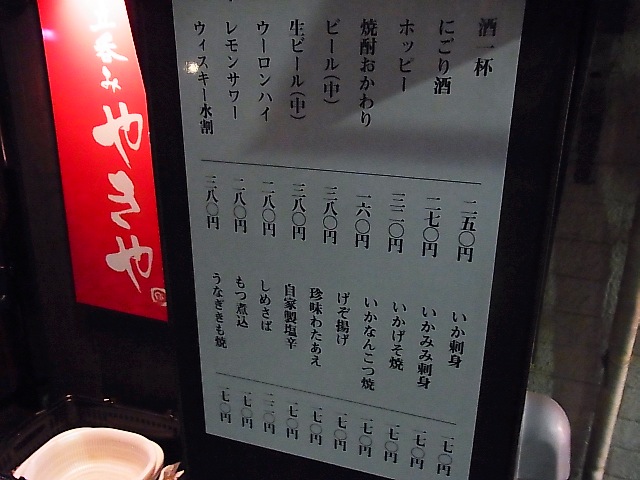 立呑み
やきや
酒一杯 二五〇円
にごり酒 二七〇円
ホッピー 三二〇円
焼酎おかわり 一六〇円
ビール(中) 三八〇円
生ビール(中) 三八〇円
ウーロンハイ 二八〇円
レモンサワー 二八〇円
ウィスキー水割 三八〇円
いか刺身 一七〇円
いかみみ刺身 一七〇円
いかげそ焼 一七〇円
いかなんこつ焼 一七〇円
げそ揚げ 一七〇円
珍味わたあえ 一七〇円
自家製塩辛 一七〇円
しめさば
もつ煮込 一七〇円
うなぎきも焼 一七〇円